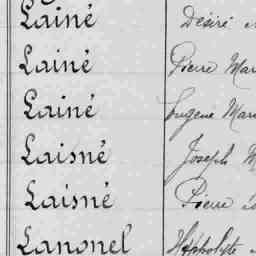 Lainé Désiré
Lainé Pierre Mar
Lainé Eugène Mar
Laisné Joseph M
Laisné Pierre
Lanonel Hippolyte